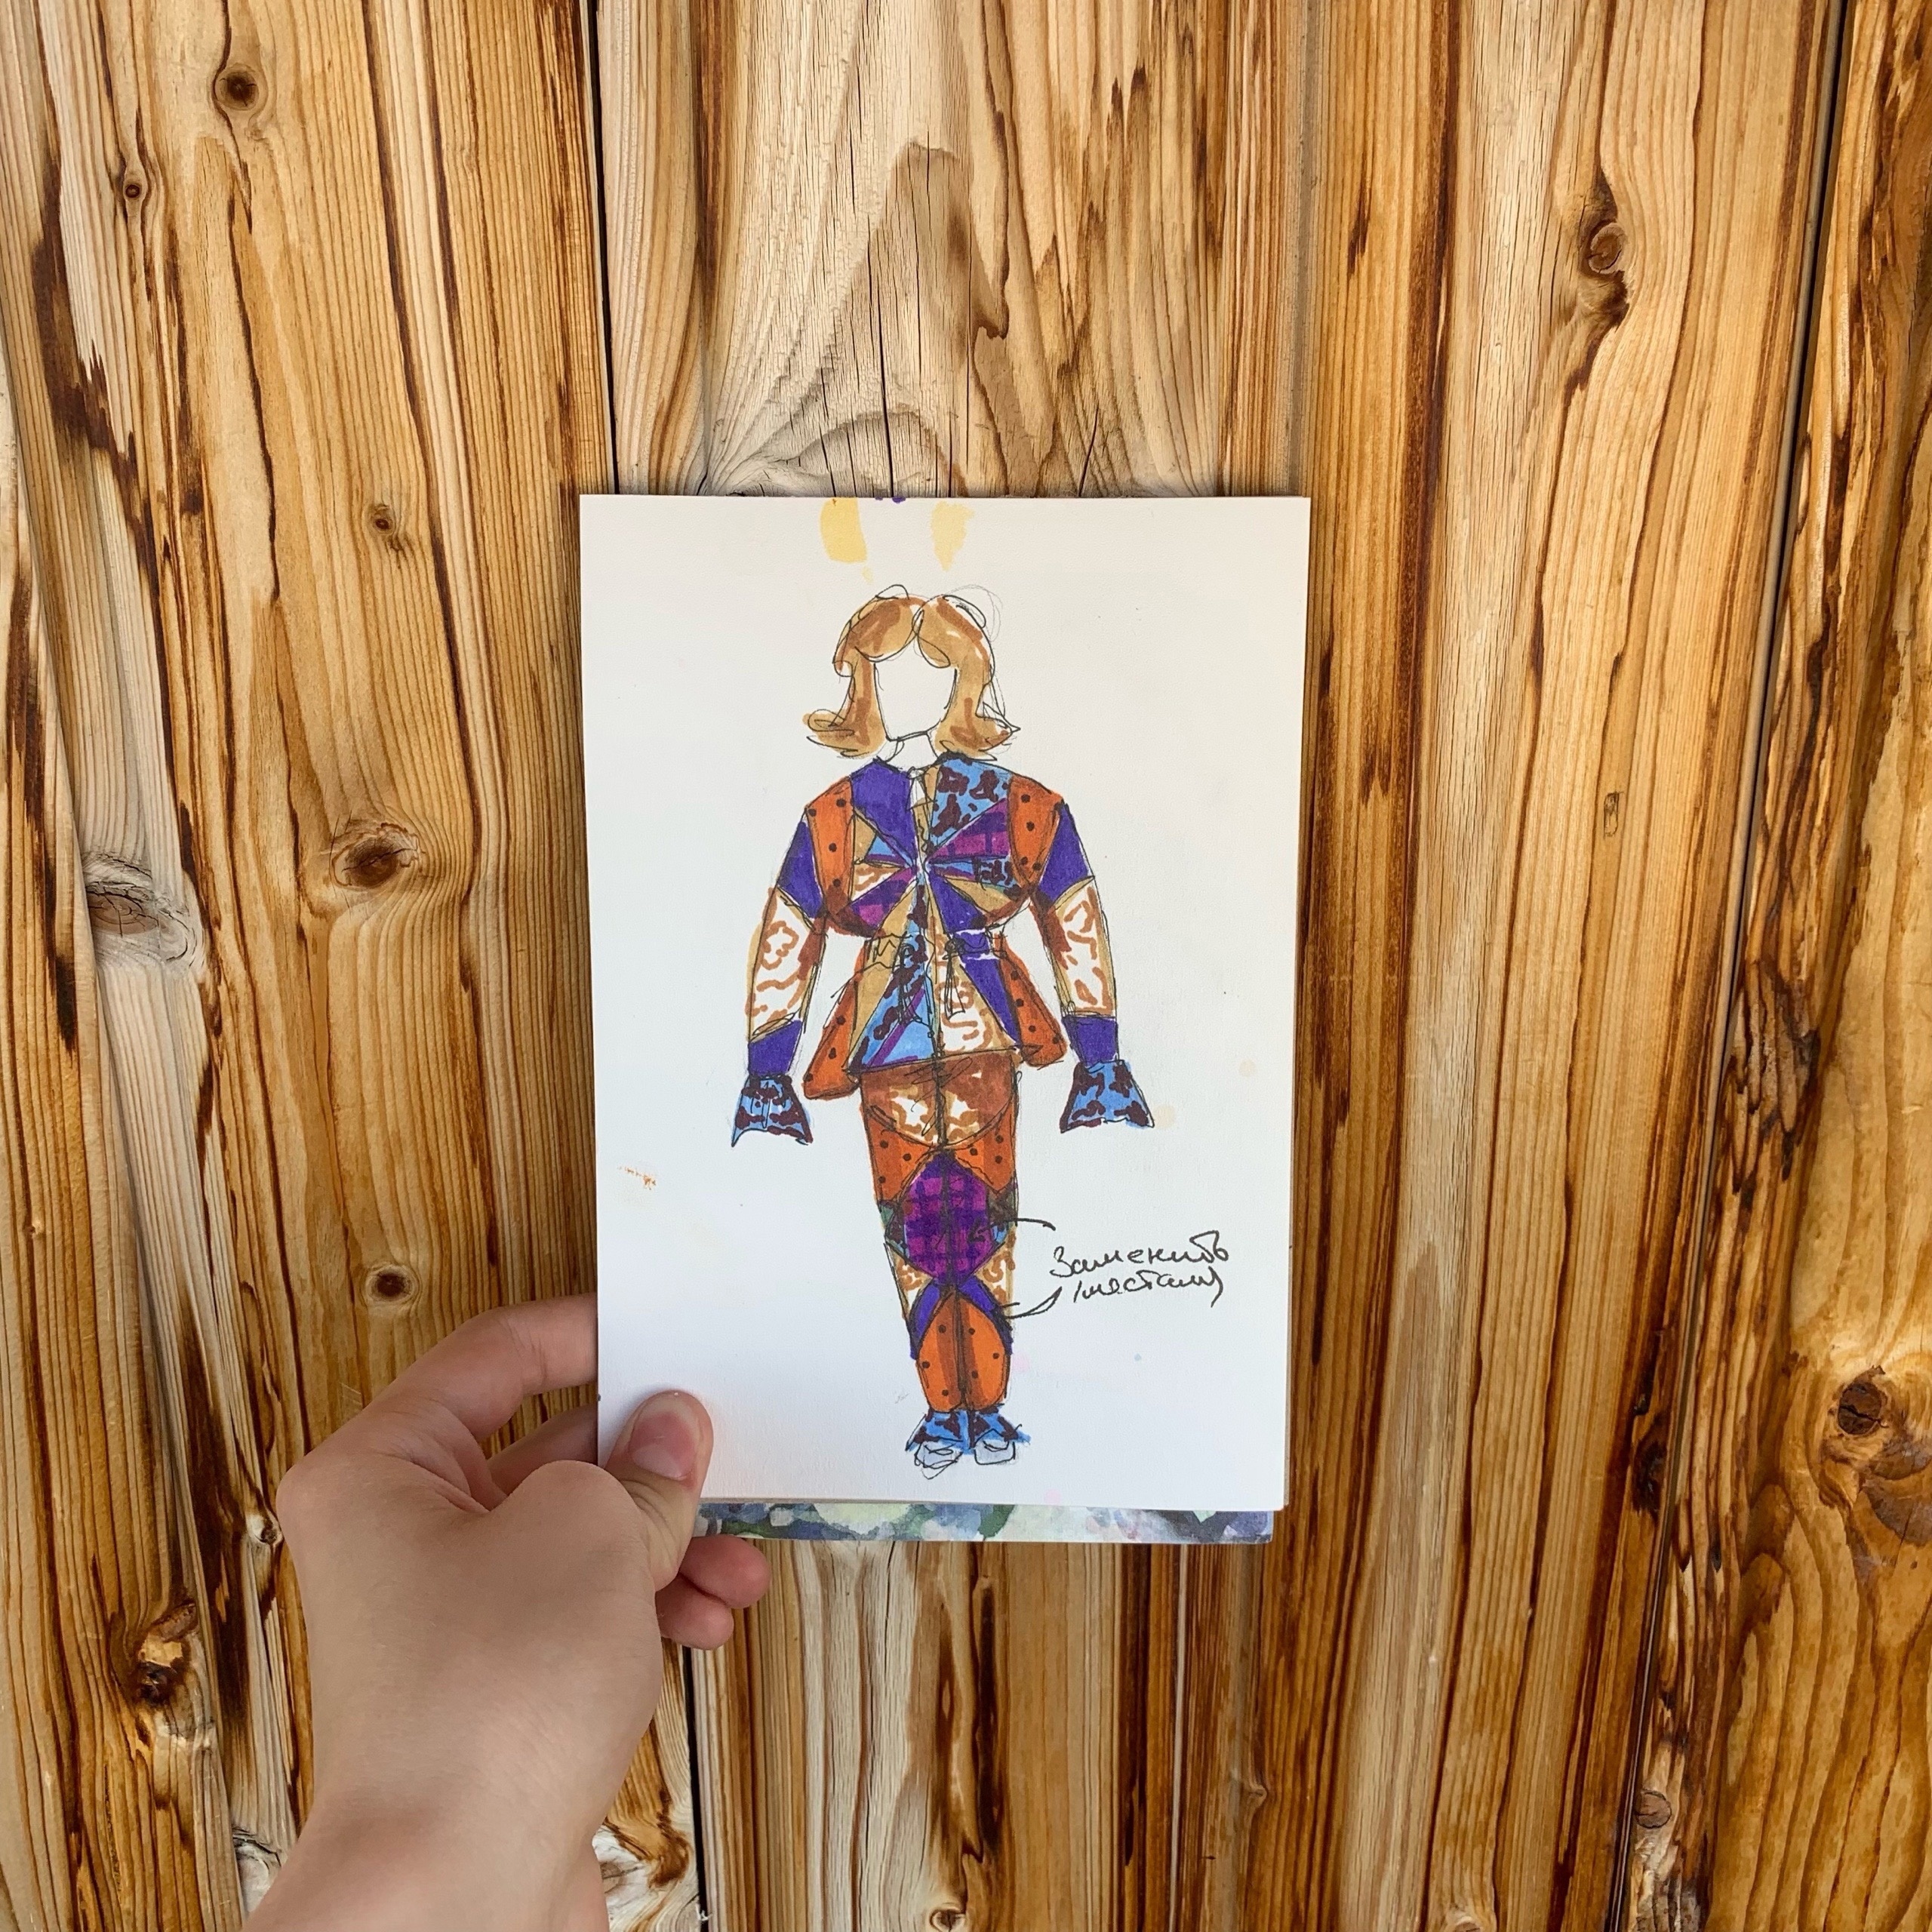 Заменить
местами